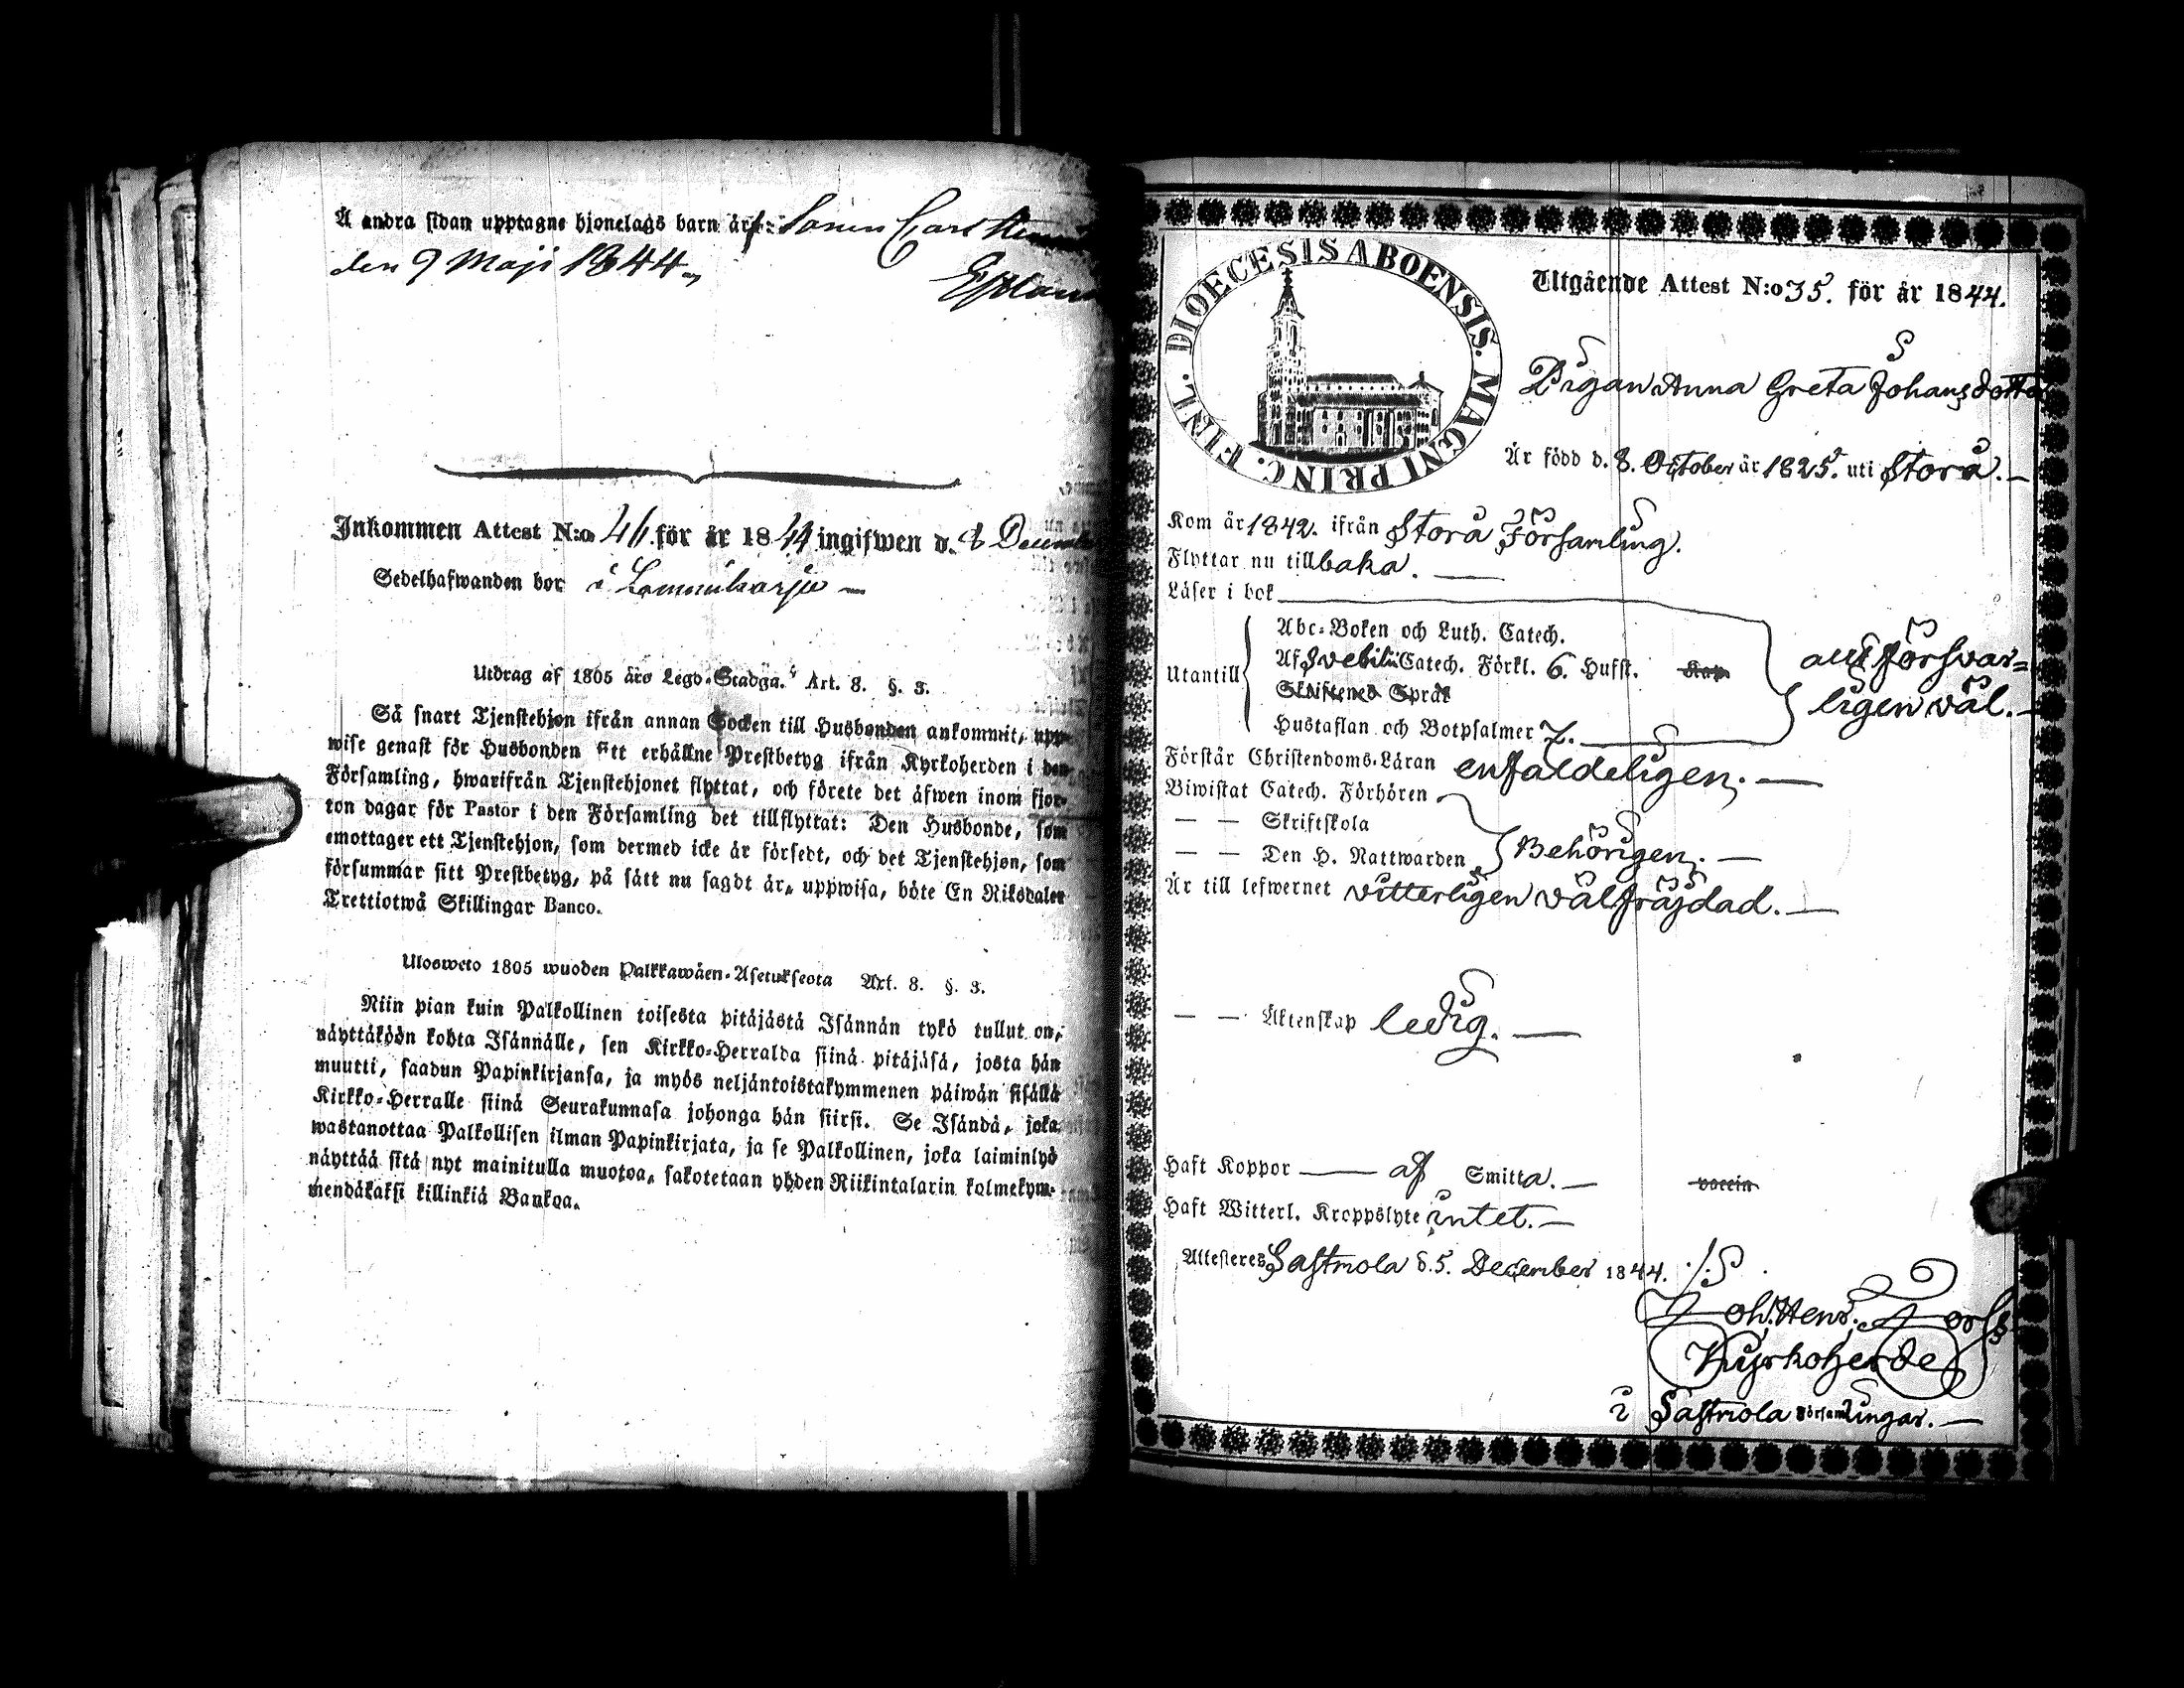 Å andra sidan upptagne hjonelags barn är: Sonen Carl
den 9 Maji 1844
Inkommen Attest N:o 46 för år 1844 ingifwen d. 8 December
Sedelhafwanden bor i
Utdrag af 1805 års Lego-Stadga. Art. 8. §. 3.
Så snart Tjenstehjon ifrån annan Socken till Husbonden ankommit, upp-
wise genast för Husbonden sitt erhållne Prestbetyg ifrån Kyrkoherden i den
Församling, hwarifrån Tjenstehjonet flyttat, och förete det äfwen inom fjor-
ton dagar för Pastor i den Församling det tillflyttat: Den Husbonde, som
emottager ett Tjenstehjon, som dermed icke är försedt, och det Tjenstehjon, som
försummar sitt Prestbetyg, på sätt nu sagdt är, uppwisa, böte En Riksdaler
Trettiotwå Skillingar Banco.
Ulosweto 1805 wuoden Palkkawäen-Asetuksesta Art. 8. §. 3.
Niin pian kuin Palkollinen toisesta pitäjästä Isännän tykö tullut on,
näyttäköön kohta Isännälle, sen Kirkko-Herralda siinä pitäjäsä, josta hän
muutti, saadun Papinkirjansa, ja myös neljäntoistakymmenen päiwän sisällä
Kirkko-Herralle siinä Seurakunnasa johonga hän siirsi. Se Isändä, joka
wastanottaa Palkollisen ilman Papinkirjata, ja se Palkollinen, joka laiminlyö
näyttää sitä nyt mainitulla muotoa, sakotetaan yhden Riikintalarin kolmekym-
mendäkaksi killinkiä Bankoa.
DIOECESIS ABOENSIS. MAGNI PRINC. FINL.
Utgående Attest N:o 35. för år 1844.
Pigan Anna Greta Johansdotter
Är född d. 8. October år 1825. uti Storå.
Kom år 1842. ifrån Storå Församling.
Flyttar nu tillbaka.
Läser i bok
Abc-Boken och Luth. Catech.
Utantill Af Svebilii Catech. Förkl. 6. Hufst. Kap.
Skriftenes Språk
Hustaflan och Botpsalmer 7.
allt försvar=
ligen väl.
Förstår Christendoms-Läran enfaldeligen.
Biwistat Catech. Förhören
— — Skriftskola
— — Den H. Nattwarden Behörigen.
Är till lefwernet vitterligen välfräjdad.
— — Äktenskap ledig.
Haft Koppor af Smitta. vaccin
Haft Witterl. Kroppslyte intet.
Attesteres Sastmola d. 5. December 1844.
Joh. Henr.
Kyrkoherde
i Sastmola Församlingar.